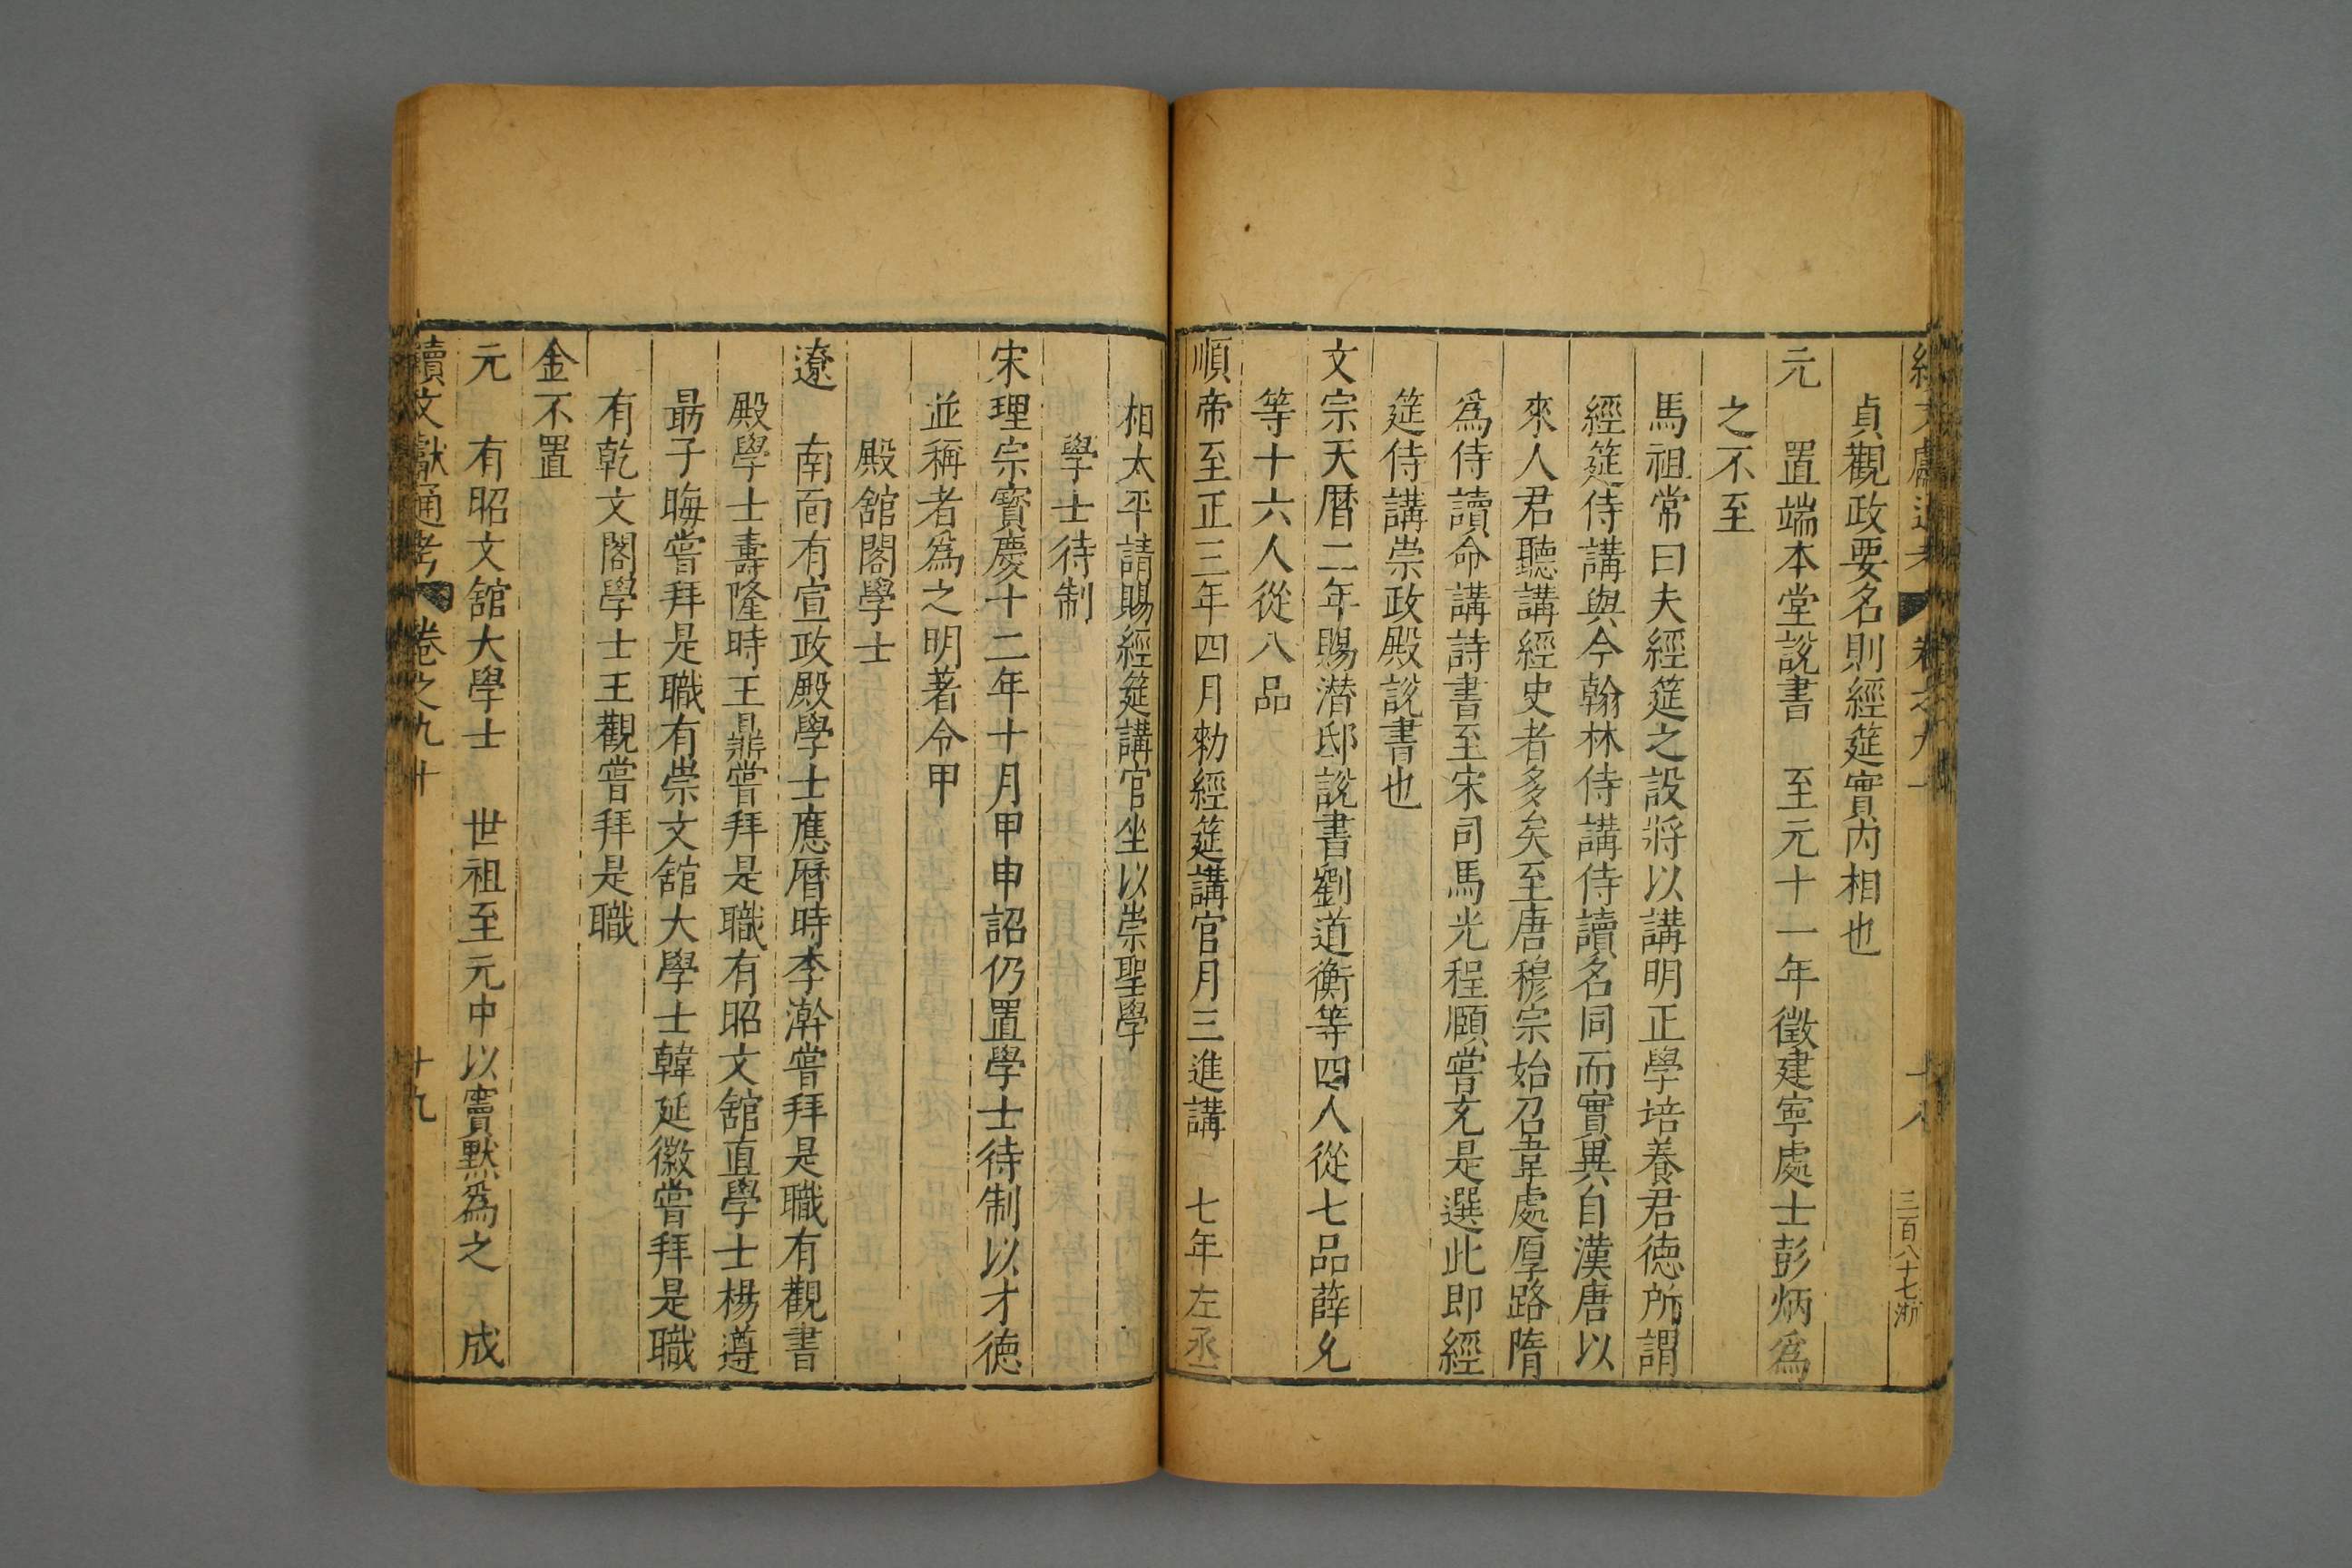 貞觀政要名則經筵實内相也
元　置端本堂說書　至元十一年徵建寧處士彭炳爲
之不至
馬祖常曰夫經筵之設將以講明正學培養君徳所謂
經筵侍講與今翰林侍講侍讀名同而實異自漢唐以
來人君聽講經史者多矣至唐穆宗始召韋處厚路隋
爲侍讀命講詩書至宋司馬光程頥嘗充是選此即經
筵侍講崇政殿說書也
文宗天曆二年賜潜邸說書劉道衡等四人從七品薛允
等十六人從八品
順帝至正三年四月勑經筵講官月三進講　七年左丞
相太平請賜經筵講官坐以崇聖學
學士待制
宋理宗寳慶十二年十月甲申詔仍置學士待制以才徳
並稱者爲之明著令甲
殿舘閣學士
遼　南面有宣政殿學士應曆時李澣嘗拜是職有觀書
殿學士壽隆時王鼎嘗拜是職有昭文舘直學士楊遵
朂子晦嘗拜是職有崇文舘大學士韓延徽嘗拜是職
有乾文閣學士王觀嘗拜是職
金不置
元　有昭文舘大學士　世祖至元中以竇黙爲之　成
續文獻通考　卷之九十　十九
三百八十七浙